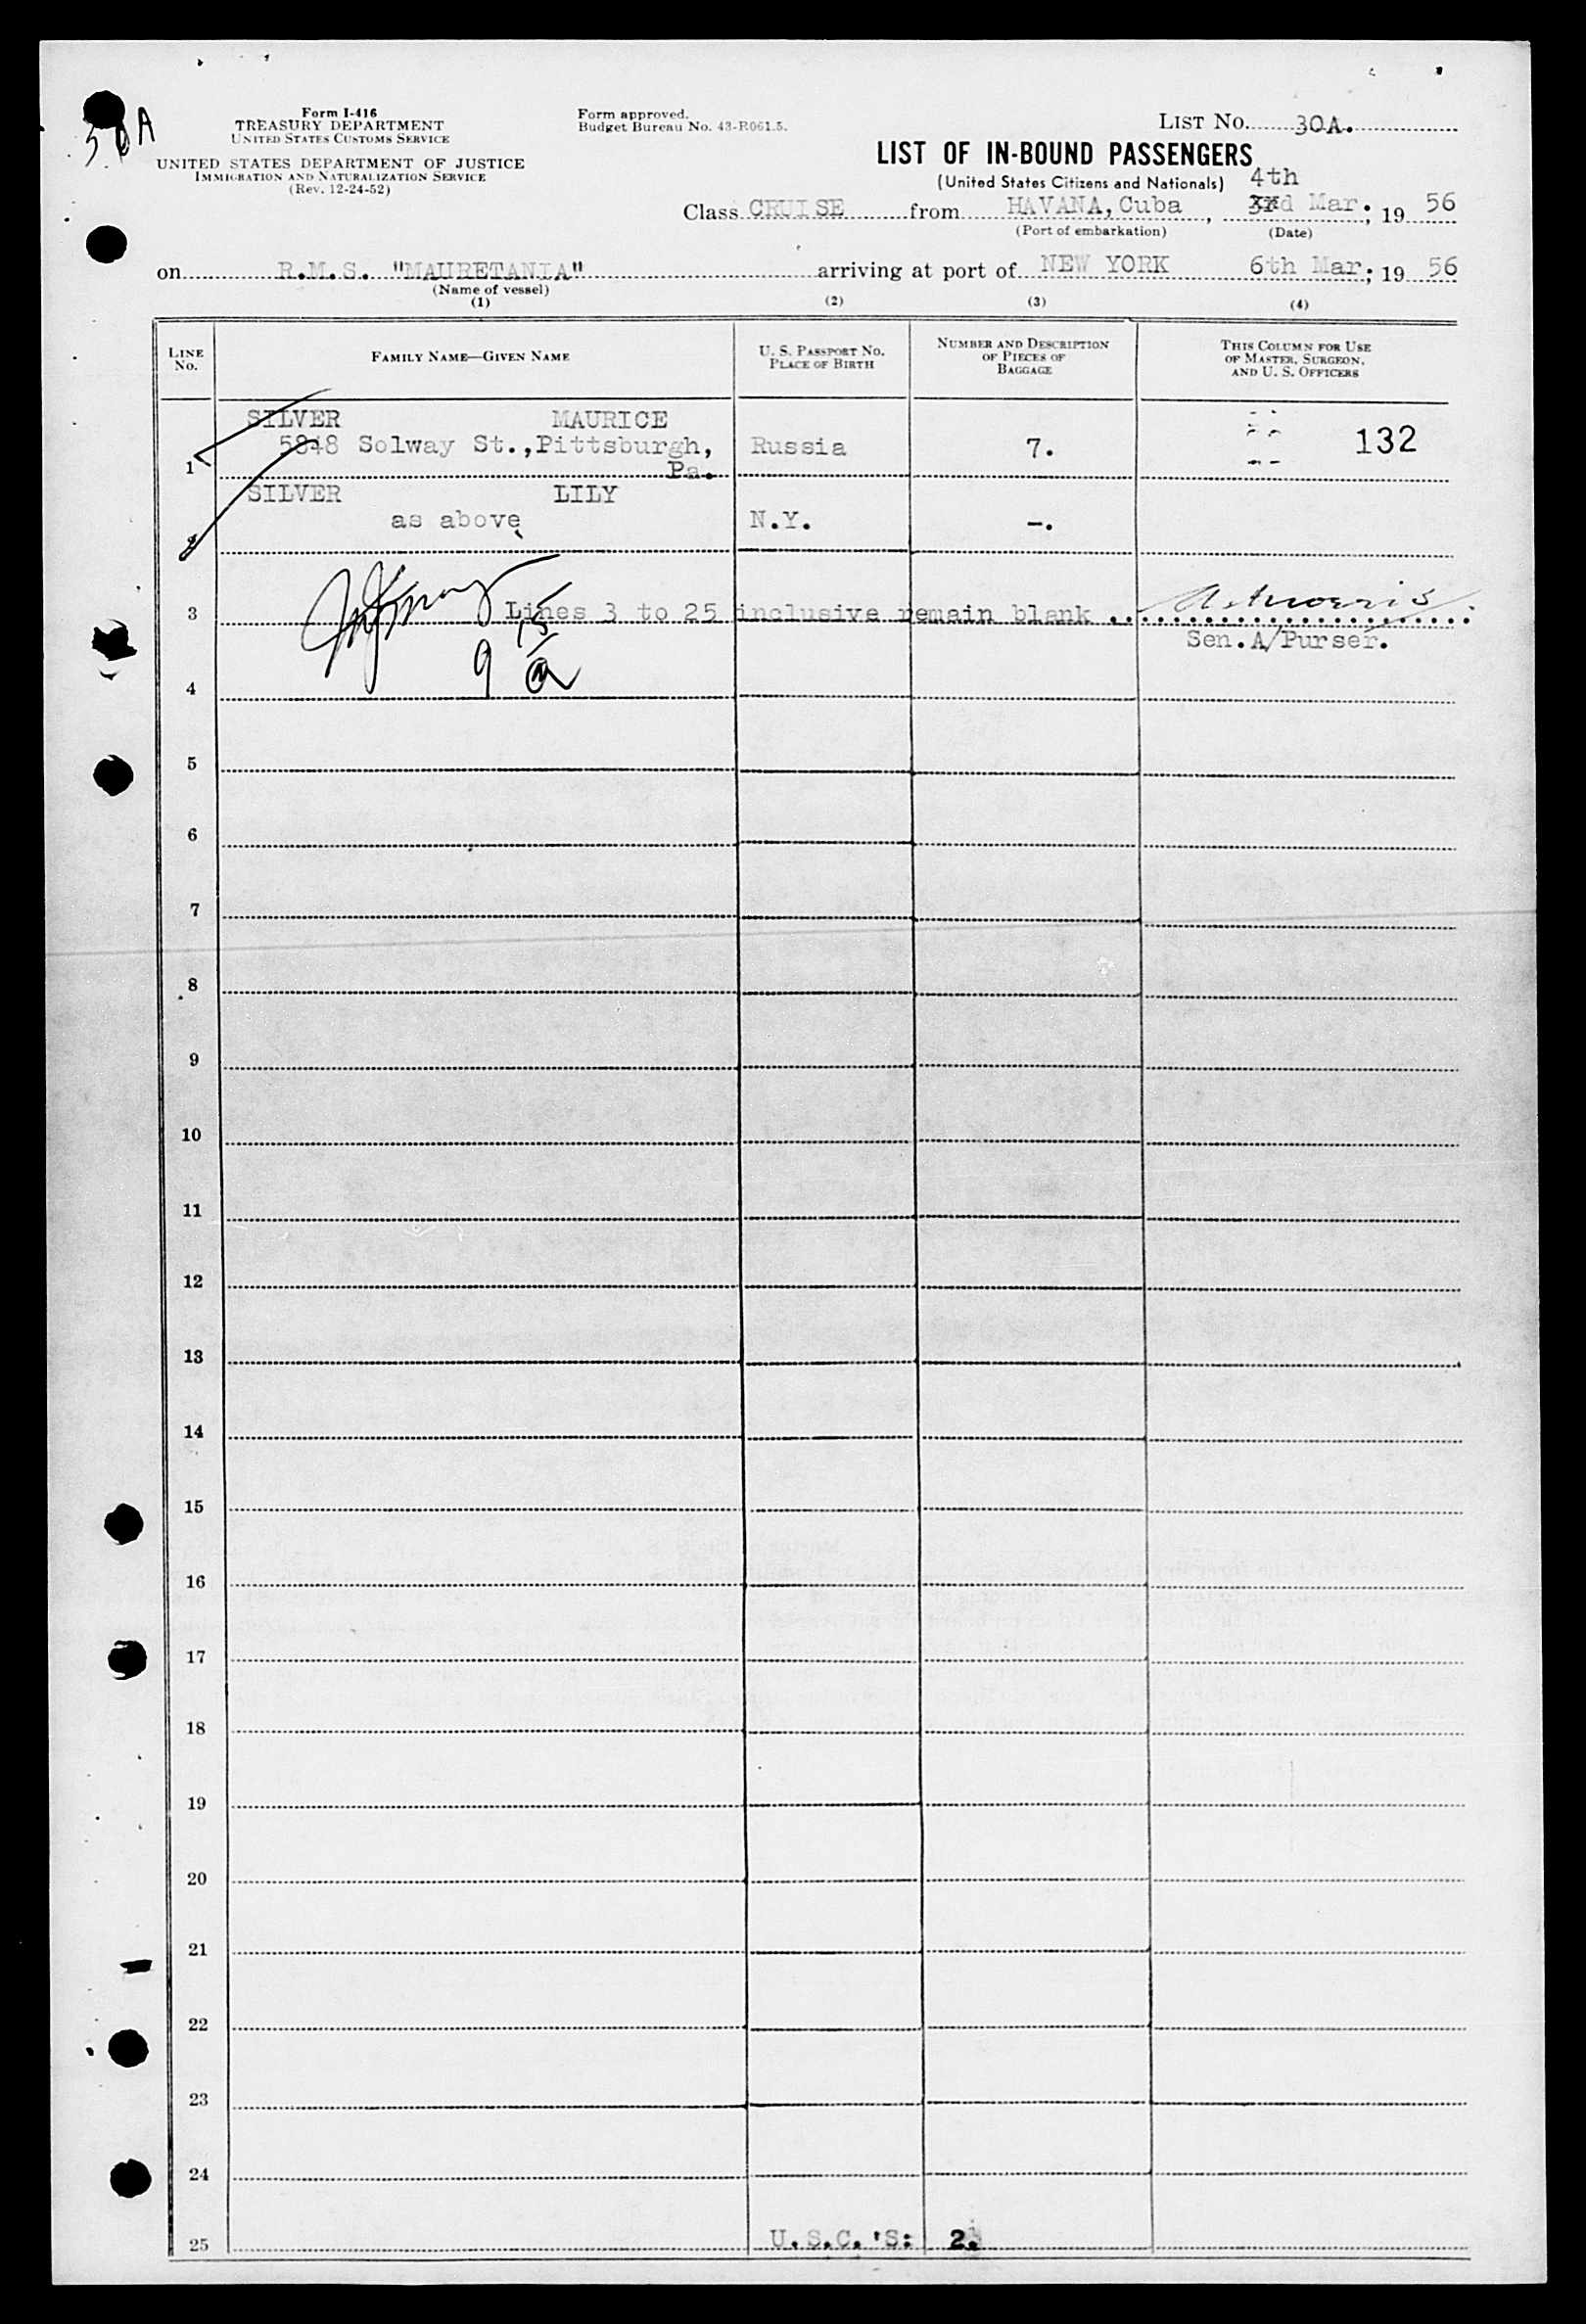 30A
Form I-416
TREASURY DEPARTMENT
UNITED STATES CUSTOMS SERVICE
UNITED STATES DEPARTMENT OF JUSTICE
IMMIGRATION AND NATURALIZATION SERVICE
(Rev. 12-24-52)
Form approved.
Budget Bureau No. 43-R061.5.
LIST No. 30A.
LIST OF IN-BOUND PASSENGERS
(United States Citizens and Nationals)
4th
Class CRUISE from HAVANA, Cuba, 3rd Mar., 19 56
(Port of embarkation) (Date)
on R.M.S. "MAURETANIA" arriving at port of NEW YORK 6th Mar., 19 56
(Name of vessel)
(1) (2) (3) (4)
LINE No. FAMILY NAME—GIVEN NAME U. S. PASSPORT No. PLACE OF BIRTH NUMBER AND DESCRIPTION OF PIECES OF BAGGAGE THIS COLUMN FOR USE OF MASTER, SURGEON, AND U. S. OFFICERS
SILVER MAURICE
5848 Solway St., Pittsburgh, Russia 7. 132
1 Pa.
SILVER LILY
as above N.Y. -.
2
3 Lines 3 to 25 inclusive remain blank ..
Sen. A/Purser.
4
5
6
7
8
9
10
11
12
13
14
15
16
17
18
19
20
21
22
23
24
25 U.S.C.'S: 2.